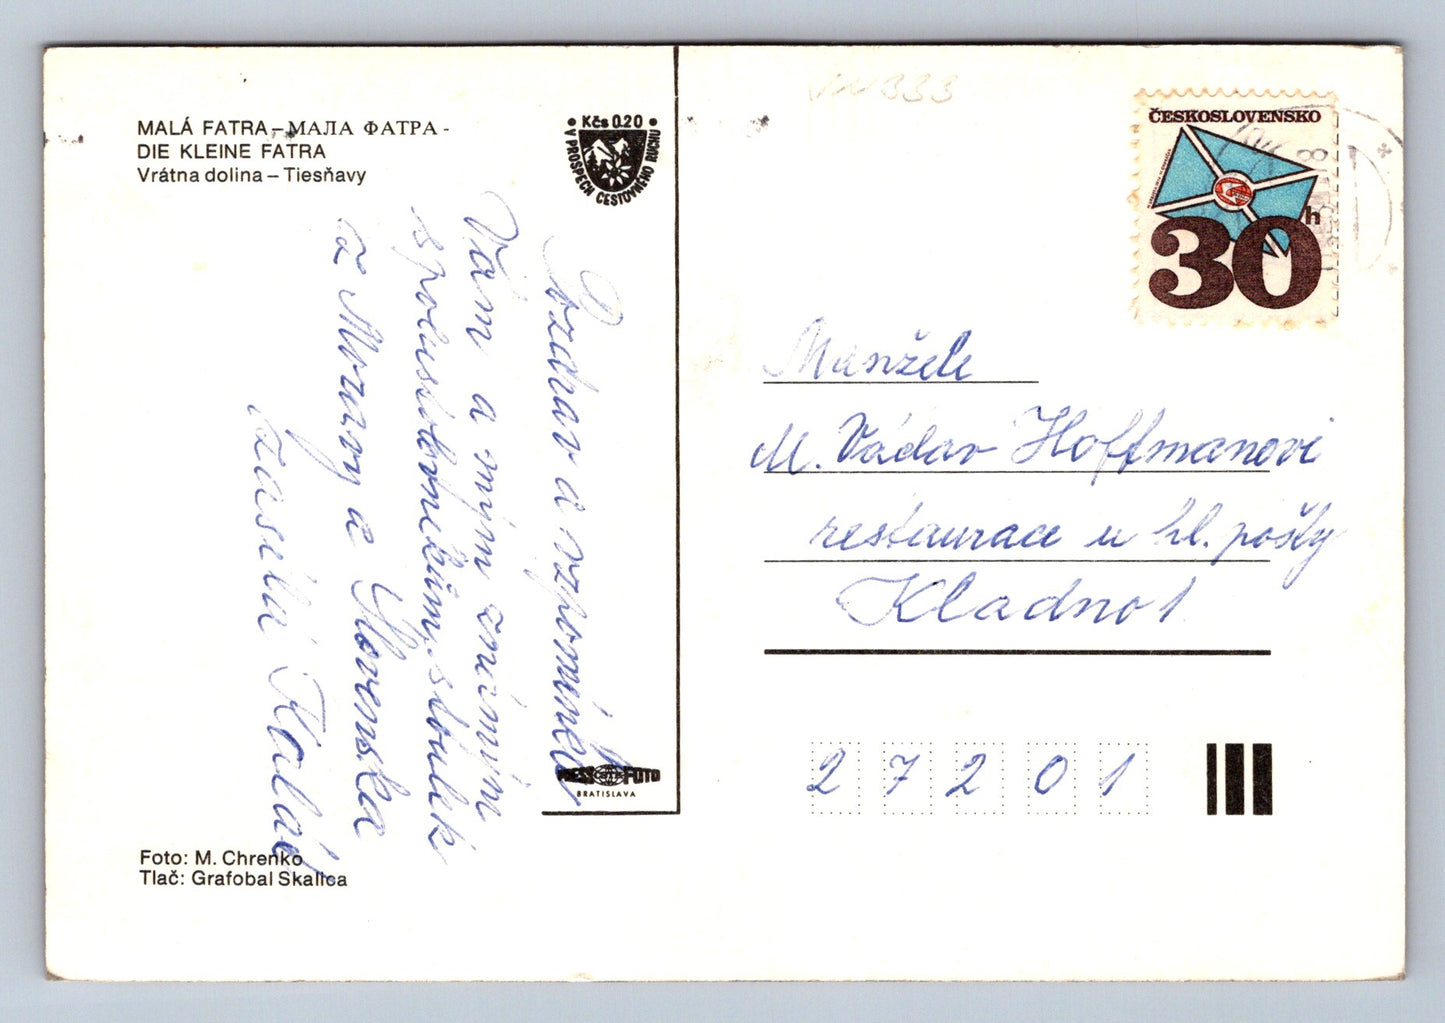 MALÁ FATRA – МАЛА ФАТРА -
DIE KLEINE FATRA
Vrátna dolina – Tiesňavy
• Kčs 0.20 •
V PROSPECH CESTOVNÉHO RUCHU
Pozdrav a vzpomínku
Vám a mým známým
spolustolovníkům
z Moravy a Slovenska
zasílá
PRESSFOTO
BRATISLAVA
Foto: M. Chrenko
Tlač: Grafobal Skalica
333
ČESKOSLOVENSKO
30h
Manželé
M. Václav Hoffmanovi
restaurace u hl. pošty
Kladno 1
2 7 2 0 1